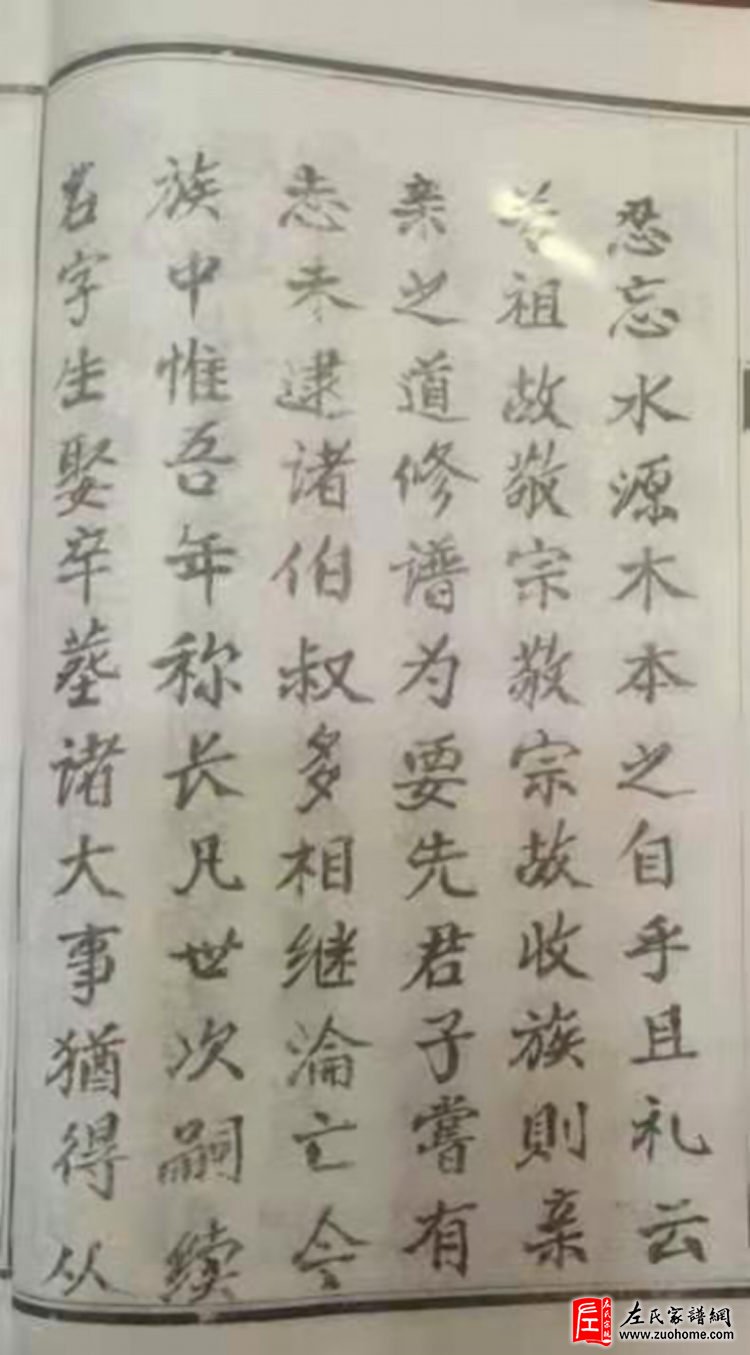 忍忘水源木本之自乎且礼云
祖故敬宗敬宗故收族則亲
亲之道修谱为要先君子嘗有
志未逮诸伯叔多相继淪亡今
族中惟吾年称长凡世次嗣续
名字生娶卒墓诸大事猶得从
左氏家譜網
www.zuohome.com